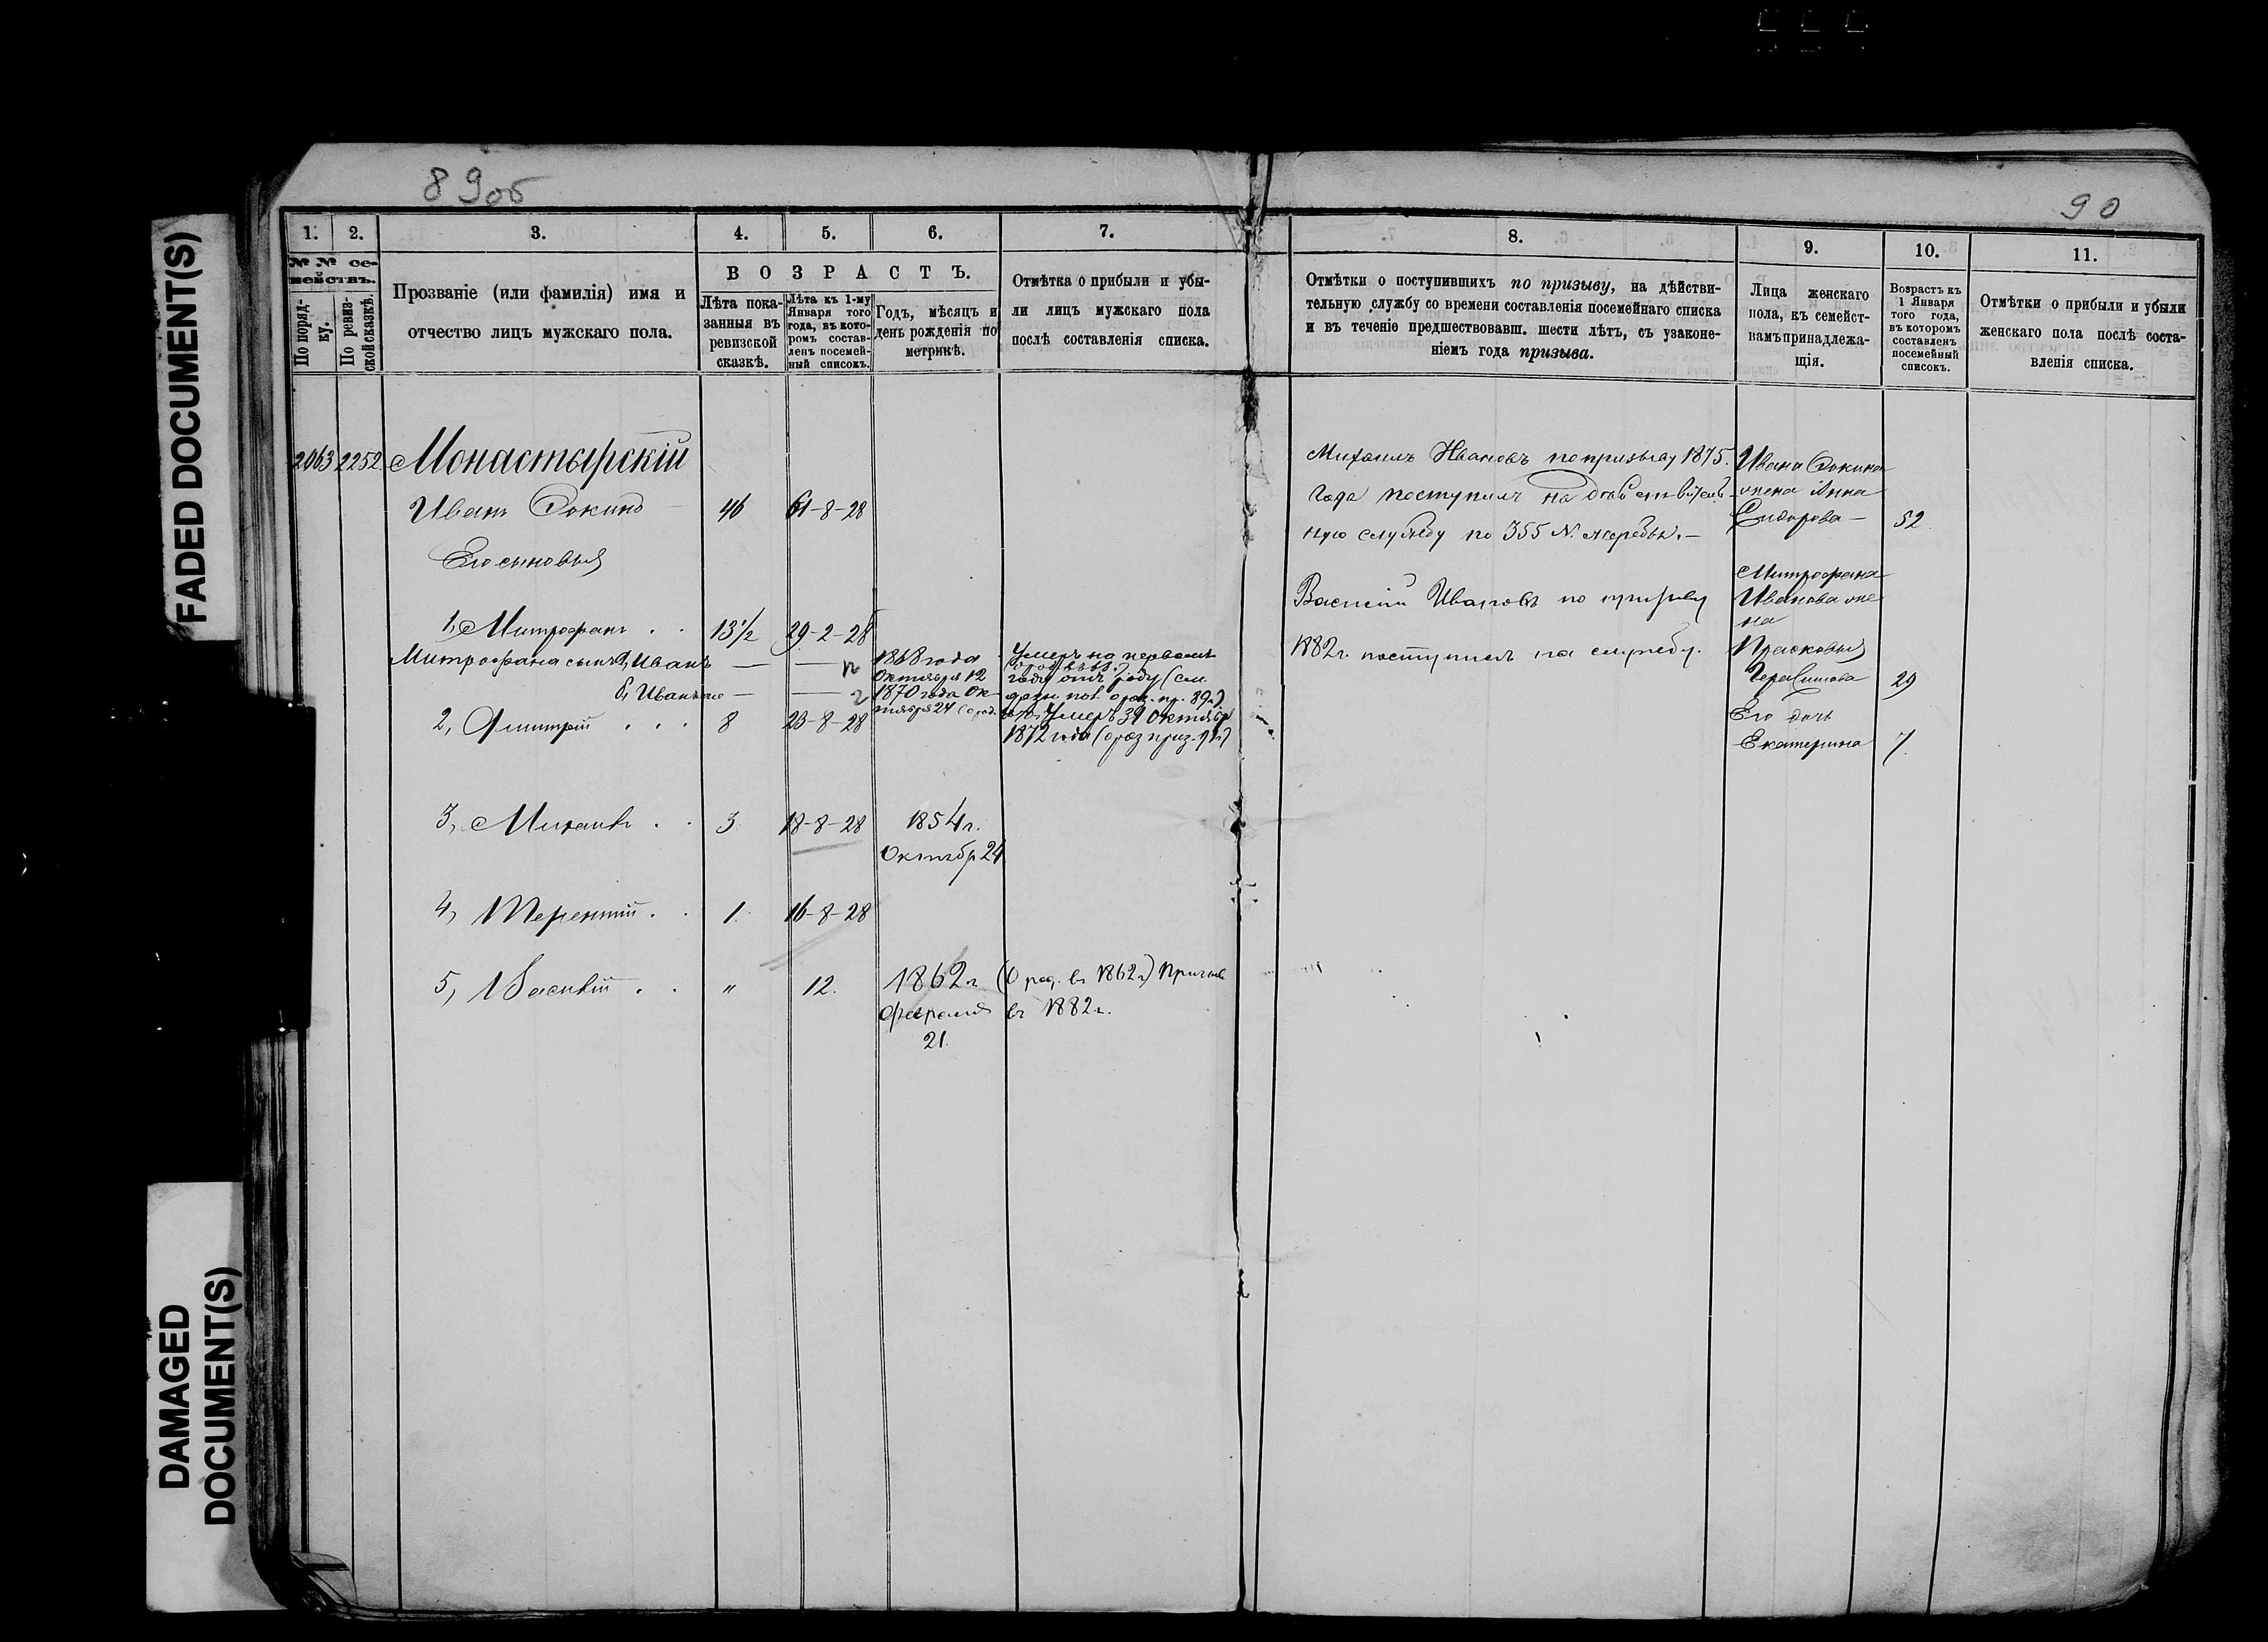 FADED DOCUMENT(S)
DAMAGED
DOCUMENT(S)
89об
90
1.
2.
3.
4.
5.
6.
7.
8.
9.
10.
11.
№ № се-
мействъ.
По поряд-
ку.
По ревиз-
ской сказкѣ.
Прозваніе (или фамилія) имя и
отчество лицъ мужскаго пола.
ВОЗРАСТЪ.
Лѣта пока-
занныя въ
ревизской
сказкѣ.
Лѣта къ 1-му
Января того
года, въ кото-
ромъ состав-
ленъ посемей-
ный списокъ.
Годъ, мѣсяцъ и
день рожденія по
метрикѣ.
Отмѣтка о прибыли и убы-
ли лицъ мужскаго пола
послѣ составленія списка.
Отмѣтки о поступившихъ по призыву, на дѣйстви-
тельную службу со времени составленія посемейнаго списка
и въ теченіе предшествовавш. шести лѣтъ, съ узаконе-
ніемъ года призыва.
Лица женскаго
пола, къ семейст-
вамъ принадлежа-
щія.
Возрастъ къ
1 Января
того года,
въ которомъ
составленъ
посемейный
списокъ.
Отмѣтки о прибыли и убыли
женскаго пола послѣ соста-
вленія списка.
2063 2252 Монастырскій
Иванъ Фокинъ 46 61-8-28
Его сыновья
1, Митрофанъ . . 13½ 29-2-28
Митрофана сынъ Иванъ — — 1868 года
Октября 12
б, Иванъ — — 1870 года Ок-
тября 24
Умеръ на первомъ
году
Умеръ 31 Октября
1872 года
2, Дмитрій . . . 8 23-8-28
3, Михаилъ . . 3 18-8-28 1854 г.
Октябр 24
4, Терентій . . 1. 16-8-28
5, Василій . . " 12. 1862 г
февраля
21.
(О род. въ 1862 г.) Призыв
въ 1882 г.
Михаилъ Ивановъ по призыву 1875.
года поступилъ на дѣйствитель-
ную службу по 355 №. жеребья.—
Василій Ивановъ по призыву
1882 г. поступилъ на службу.
Ивана Фокина
жена Анна
Сидорова — 52
Митрофана
Иванова же
на
Прасковья
29
Его дочь
Екатерина 7.